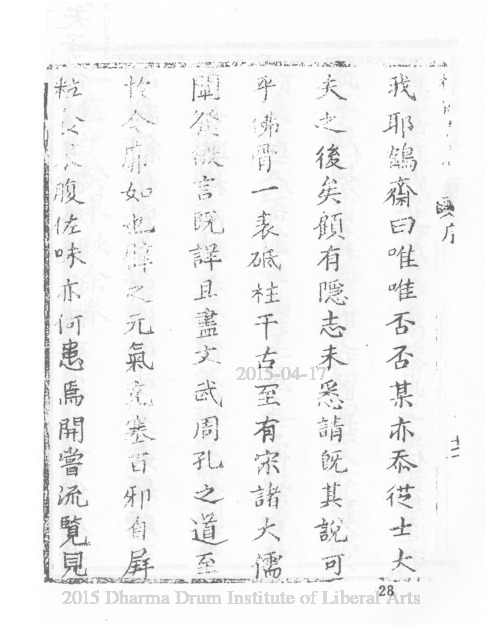 我耶鶴齋曰唯唯否否某亦忝從士大
夫之後矣顧有隱志未悉請旣其說可
乎佛骨一表砥柱千古至有宋諸大儒
闡發微言旣詳且盡文武周孔之道至
於今廓如也譬之元氣充塞百邪自屛
腹佐味亦何患焉開嘗流覽見
28
2015-04-17
2015 Dharma Drum Institute of Liberal Arts